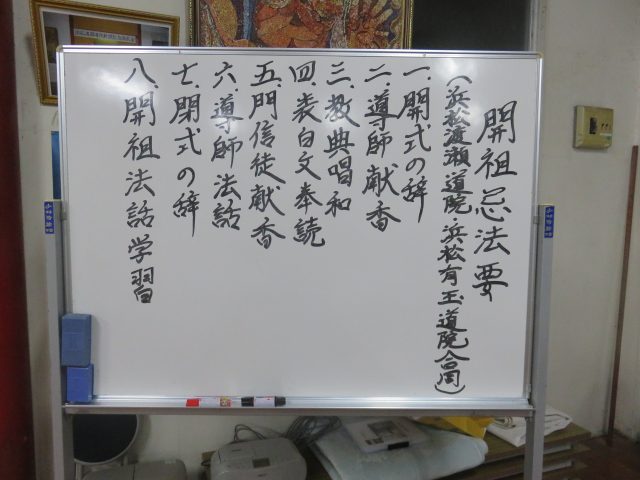 開祖忌法要
(浜松渡瀬道院・浜松有玉道院合同)
一、開式の辞
二、導師献香
三、教典唱和
四、表白文奉読
五、門信徒献香
六、導師法話
七、閉式の辞
八、開祖法話学習